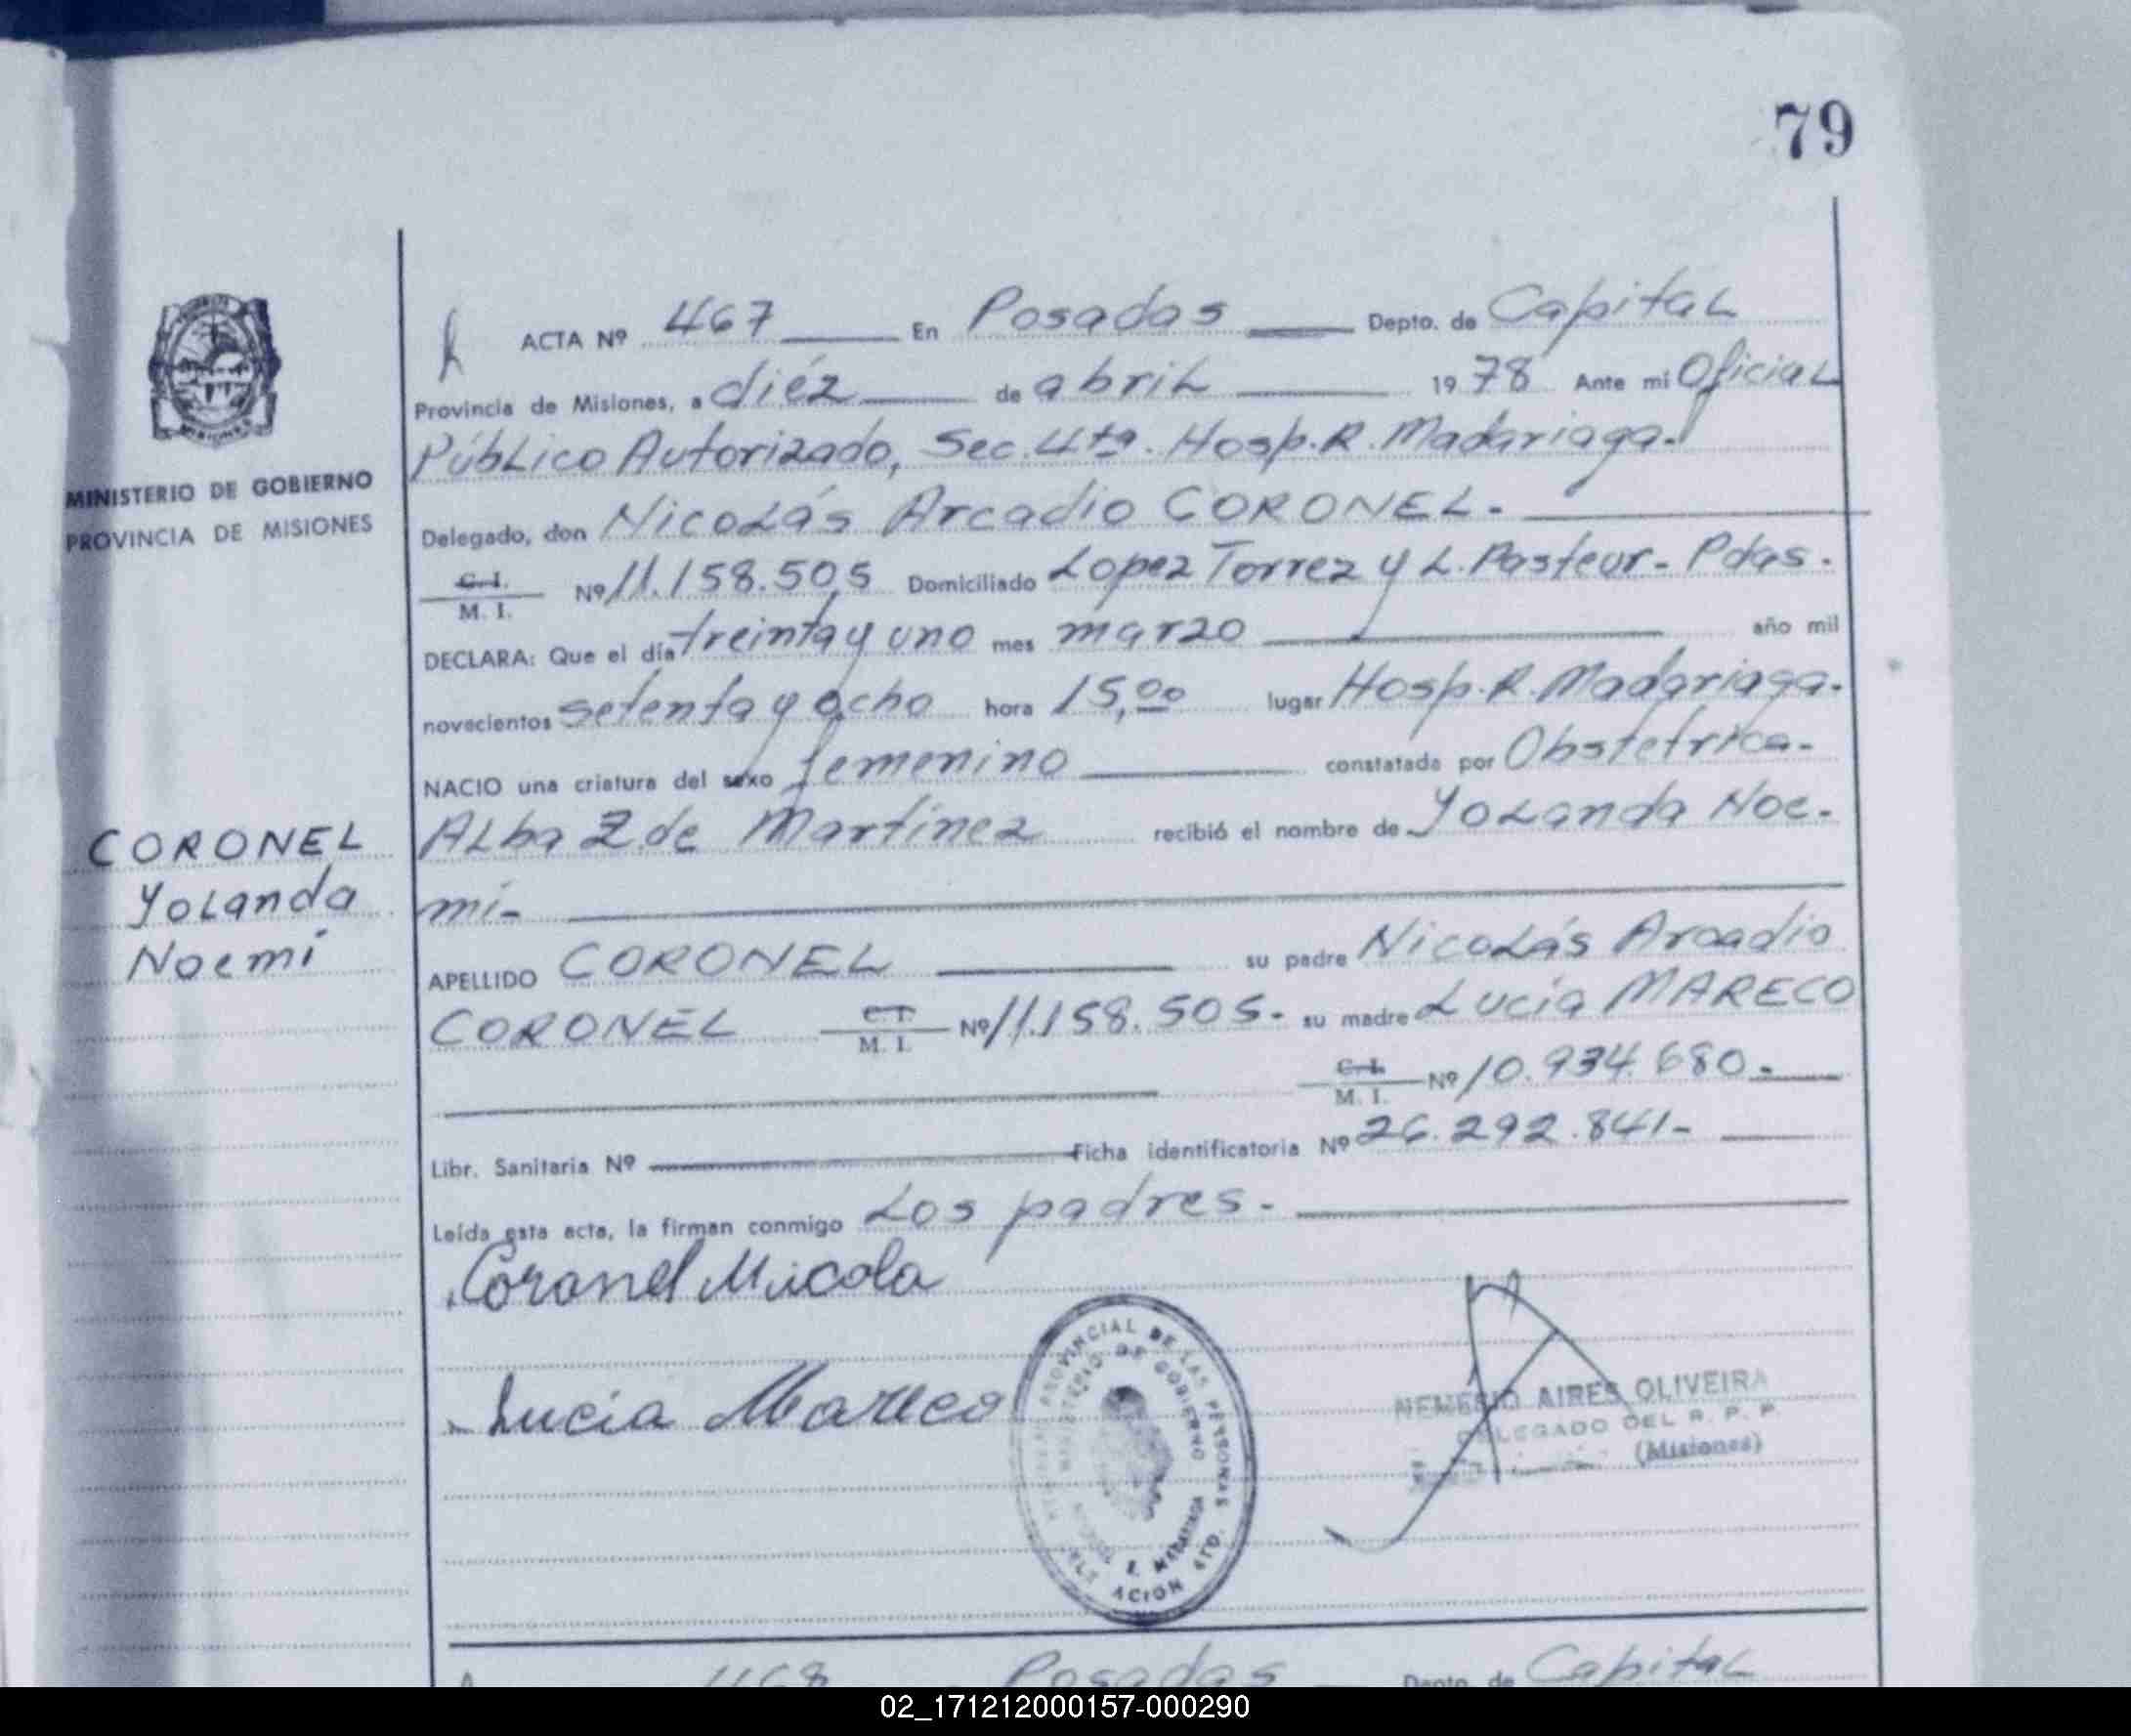 79
ACTA Nº 467 En Posadas Depto. de Capital
Provincia de Misiones, a diéz de abril 19 78 Ante mi Oficial
Público Autorizado, Sec. 4ta. Hosp. R. Madariaga.
MINISTERIO DE GOBIERNO
PROVINCIA DE MISIONES
Delegado, don Nicolás Arcadio CORONEL.
C. I.
M. I. Nº 11.158.505 Domiciliado Lopez Torrez y L. Pasteur - Pdas.
DECLARA: Que el día treinta y uno mes marzo año mil
novecientos setenta y ocho hora 15,00 lugar Hosp. R. Madariaga.
NACIO una criatura del sexo femenino constatada por Obstetrica.
Alba Z. de Martinez recibió el nombre de Yolanda Noe-
mí-
CORONEL
Yolanda
Noemí
APELLIDO CORONEL su padre Nicolás Arcadio
CORONEL C. I.
M. I. Nº 11.158.505- su madre Lucía MARECO
C. I.
M. I. Nº 10.934.680-
Libr. Sanitaria Nº Ficha identificatoria Nº 26.292.841-
Leída esta acta, la firman conmigo Los padres.
Coronel Nicola
Lucia Mareco
PROVINCIAL DE LAS PERSONAS
MINISTERIO DE GOBIERNO
R. MADARIAGA
NEMESIO AIRES OLIVEIRA
DELEGADO DEL R. P. P.
(Misiones)
468 Posadas Depto. de Capital
02_171212000157-000290